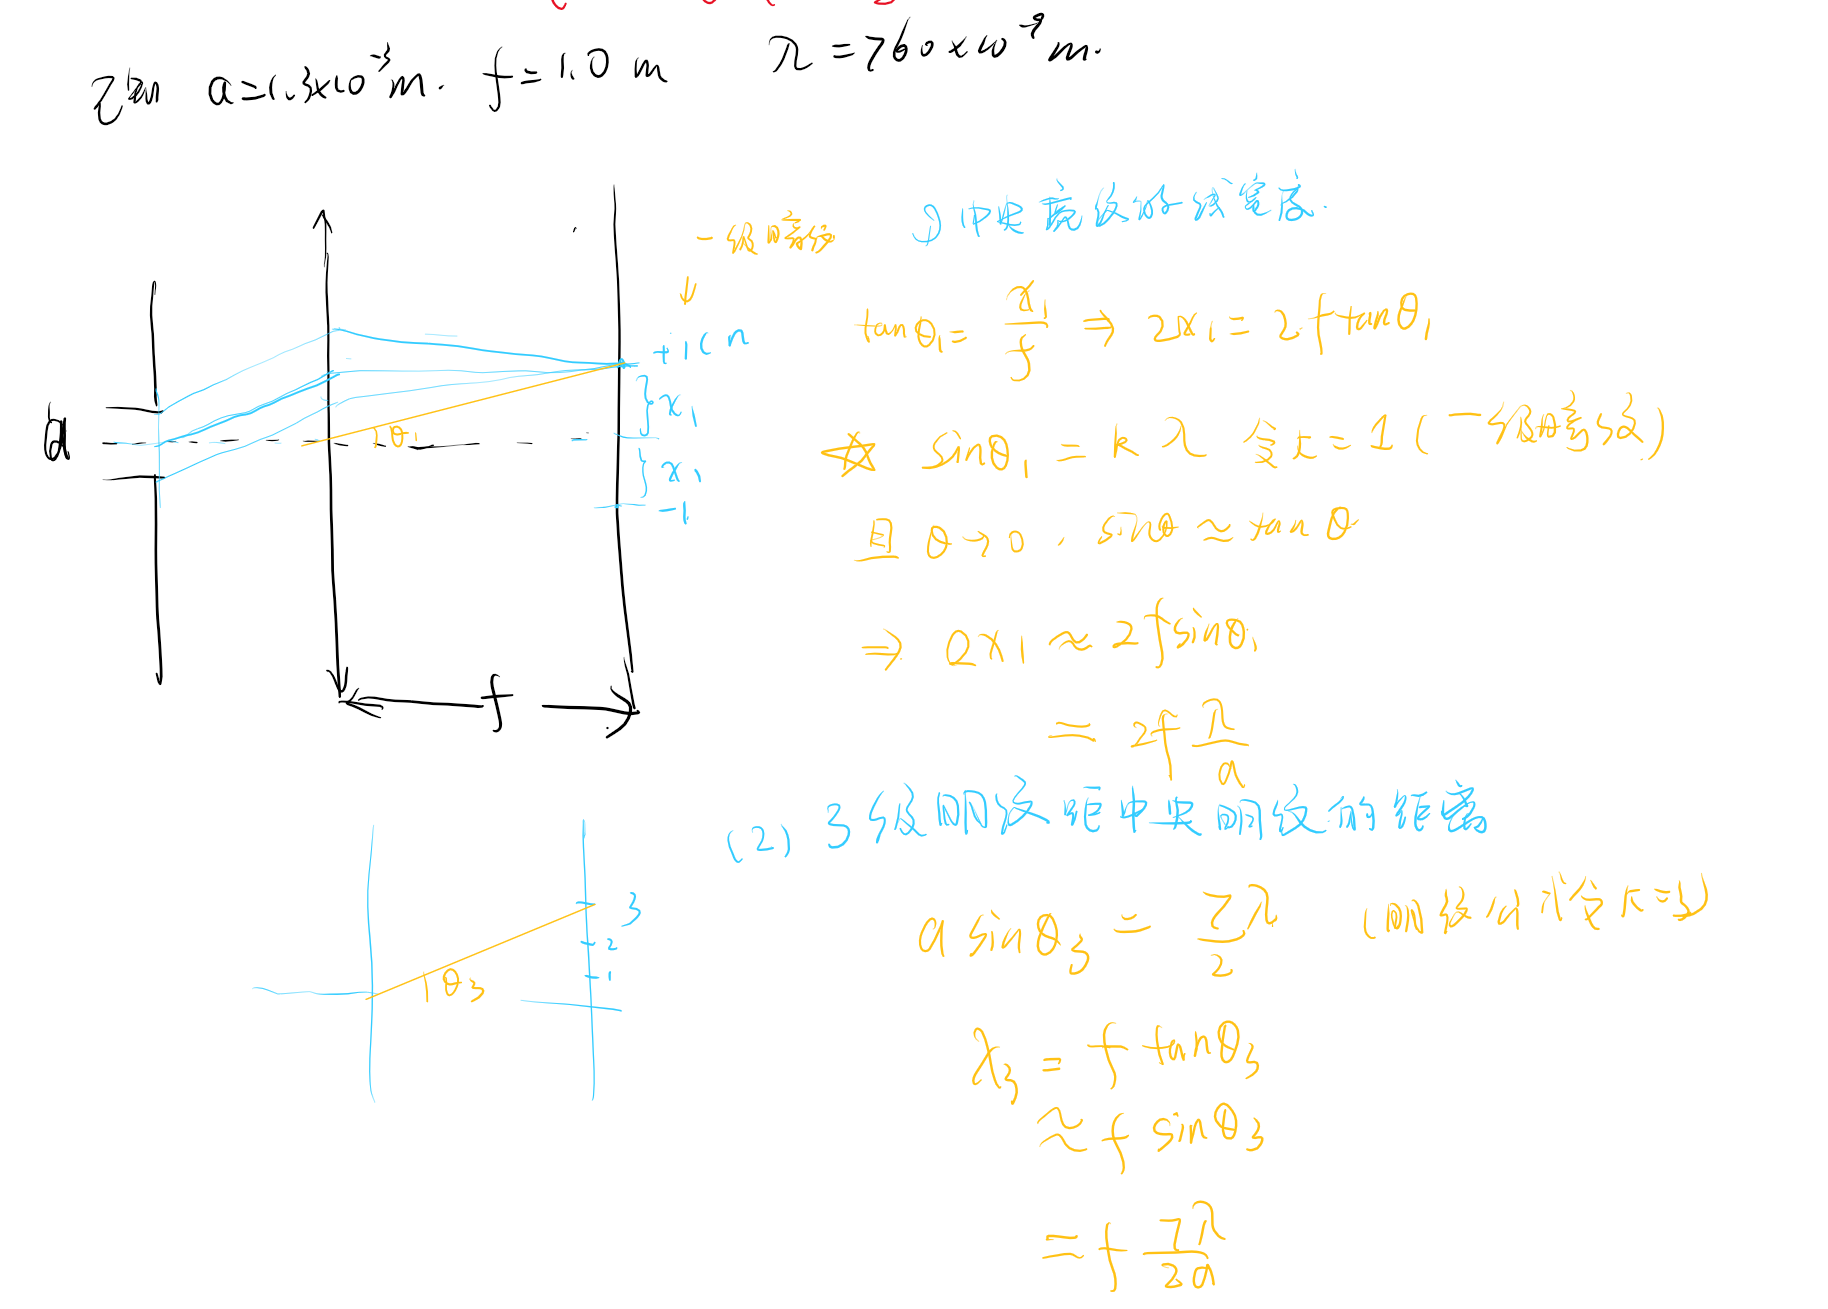 已知 a=1.3×10⁻³m. f=1.0 m λ=760×10⁻⁹m.
一级暗纹
↓
+1
x₁
x₁
-1
a
θ₁
f
1) 中央亮纹的线宽度.
tanθ₁= x₁/f ⇒ 2x₁=2f tanθ₁
☆ sinθ₁ = kλ 令k=1(一级暗纹)
且 θ→0, sinθ≈tanθ
⇒ 2x₁ ≈ 2f sinθ₁
= 2f λ/a
(2) 3级明纹距中央明纹的距离
3
2
1
θ₃
a sinθ₃ = 7λ/2 (明纹公式令k=3)
x₃ = f tanθ₃
≈ f sinθ₃
= f 7λ/2a